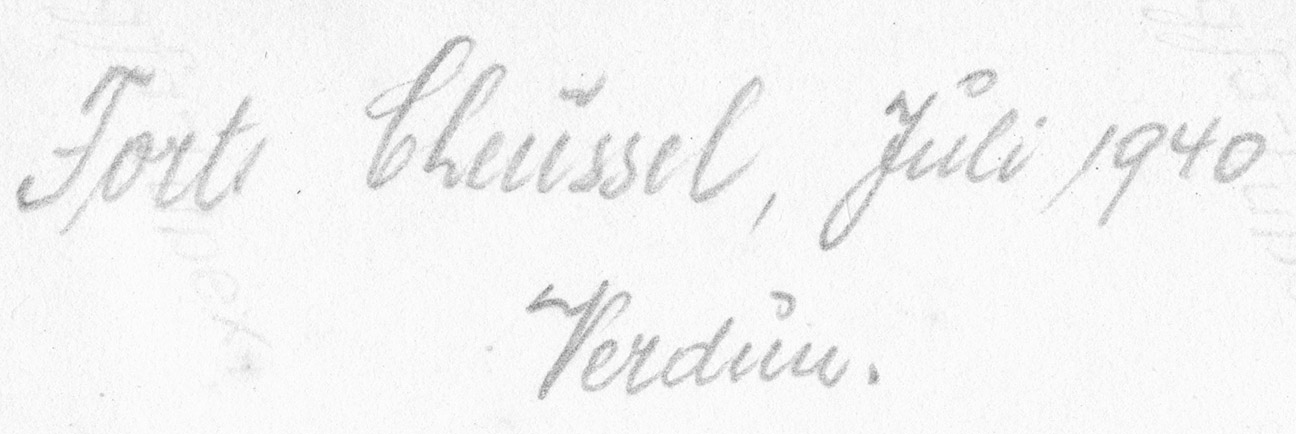 Fort Cheussel, Juli 1940
Verdun.